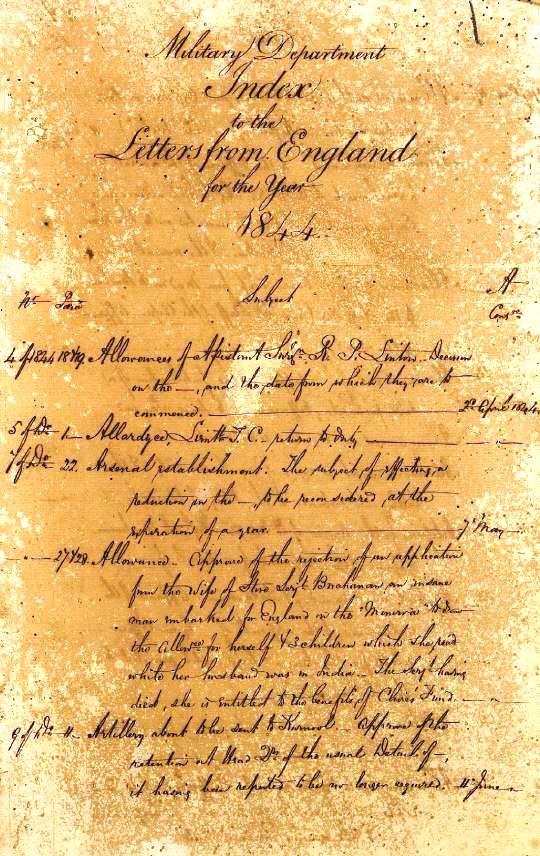 Military Department
Index
to the
Letters from England
for the Year
1844.
A
No. Para Subject Consn.
4 of 1844 18/19. Allowances of Assistant Surgn. R. P. Linton. Decision
on the —, and the date from which they are to
commence. — 2d. April 1844
5 of Do. 1 Allardyce, Lieutt. J. C. return to duty — "
7 of Do. 22. Arsenal establishment. The subject of effecting a
reduction in the —, to be reconsidered, at the
expiration of a year. — 7th May
" — 27/28. Allowance. Approval of the rejection of an application
from the Wife of Serjt. Buchanan an insane
man embarked for England on the "Minerva" to draw
the allowce. for herself & 3 children which she recd.
while her husband was in India. The Serjt. having
died, she is entitled to the benefits of Clive's Fund. — "
9 of Do. 11 Artillery about to be sent to Kurnool. Approve of the
retention at Head Qrs. of the usual Detail of —,
it having been reported to be no longer required. 11th June